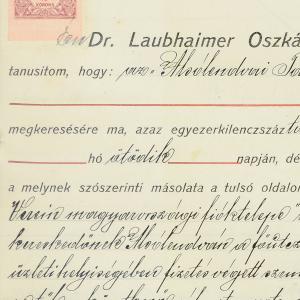 KORONA
Én Dr. Laubhaimer Oszká
tanusitom, hogy: az "Alsólendvai Ta
megkeresésére ma, azaz egyezerkilenczszáz
hó ötödik napján, dé
a melynek szószerinti másolata a tulsó oldalo
Verein magyarországi fióktelepe
kereskedőnek Alsólendván, a főutcz
üzleti helyiségében fizetés végett szem